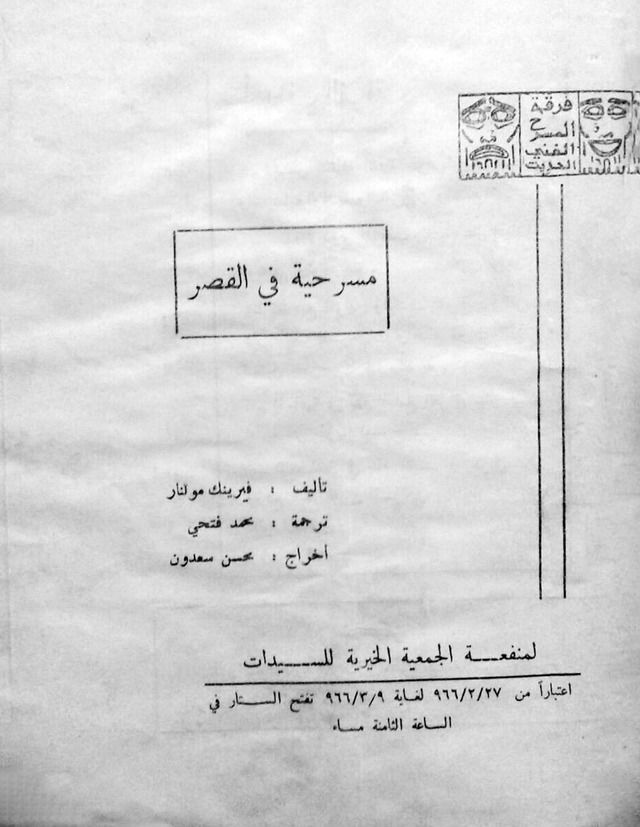 فرقة
المسرح
الفني
الحديث
مسرحية في القصر
تأليف : فيرينك مولنار
ترجمة : محمد فتحي
أخراج : محسن سعدون
لمنفعـــة الجمعية الخيرية للســـيدات
اعتباراً من ٩٦٦/٢/٢٧ لغاية ٩٦٦/٣/٩ تفتح الســتار في
الساعة الثامنة مساء